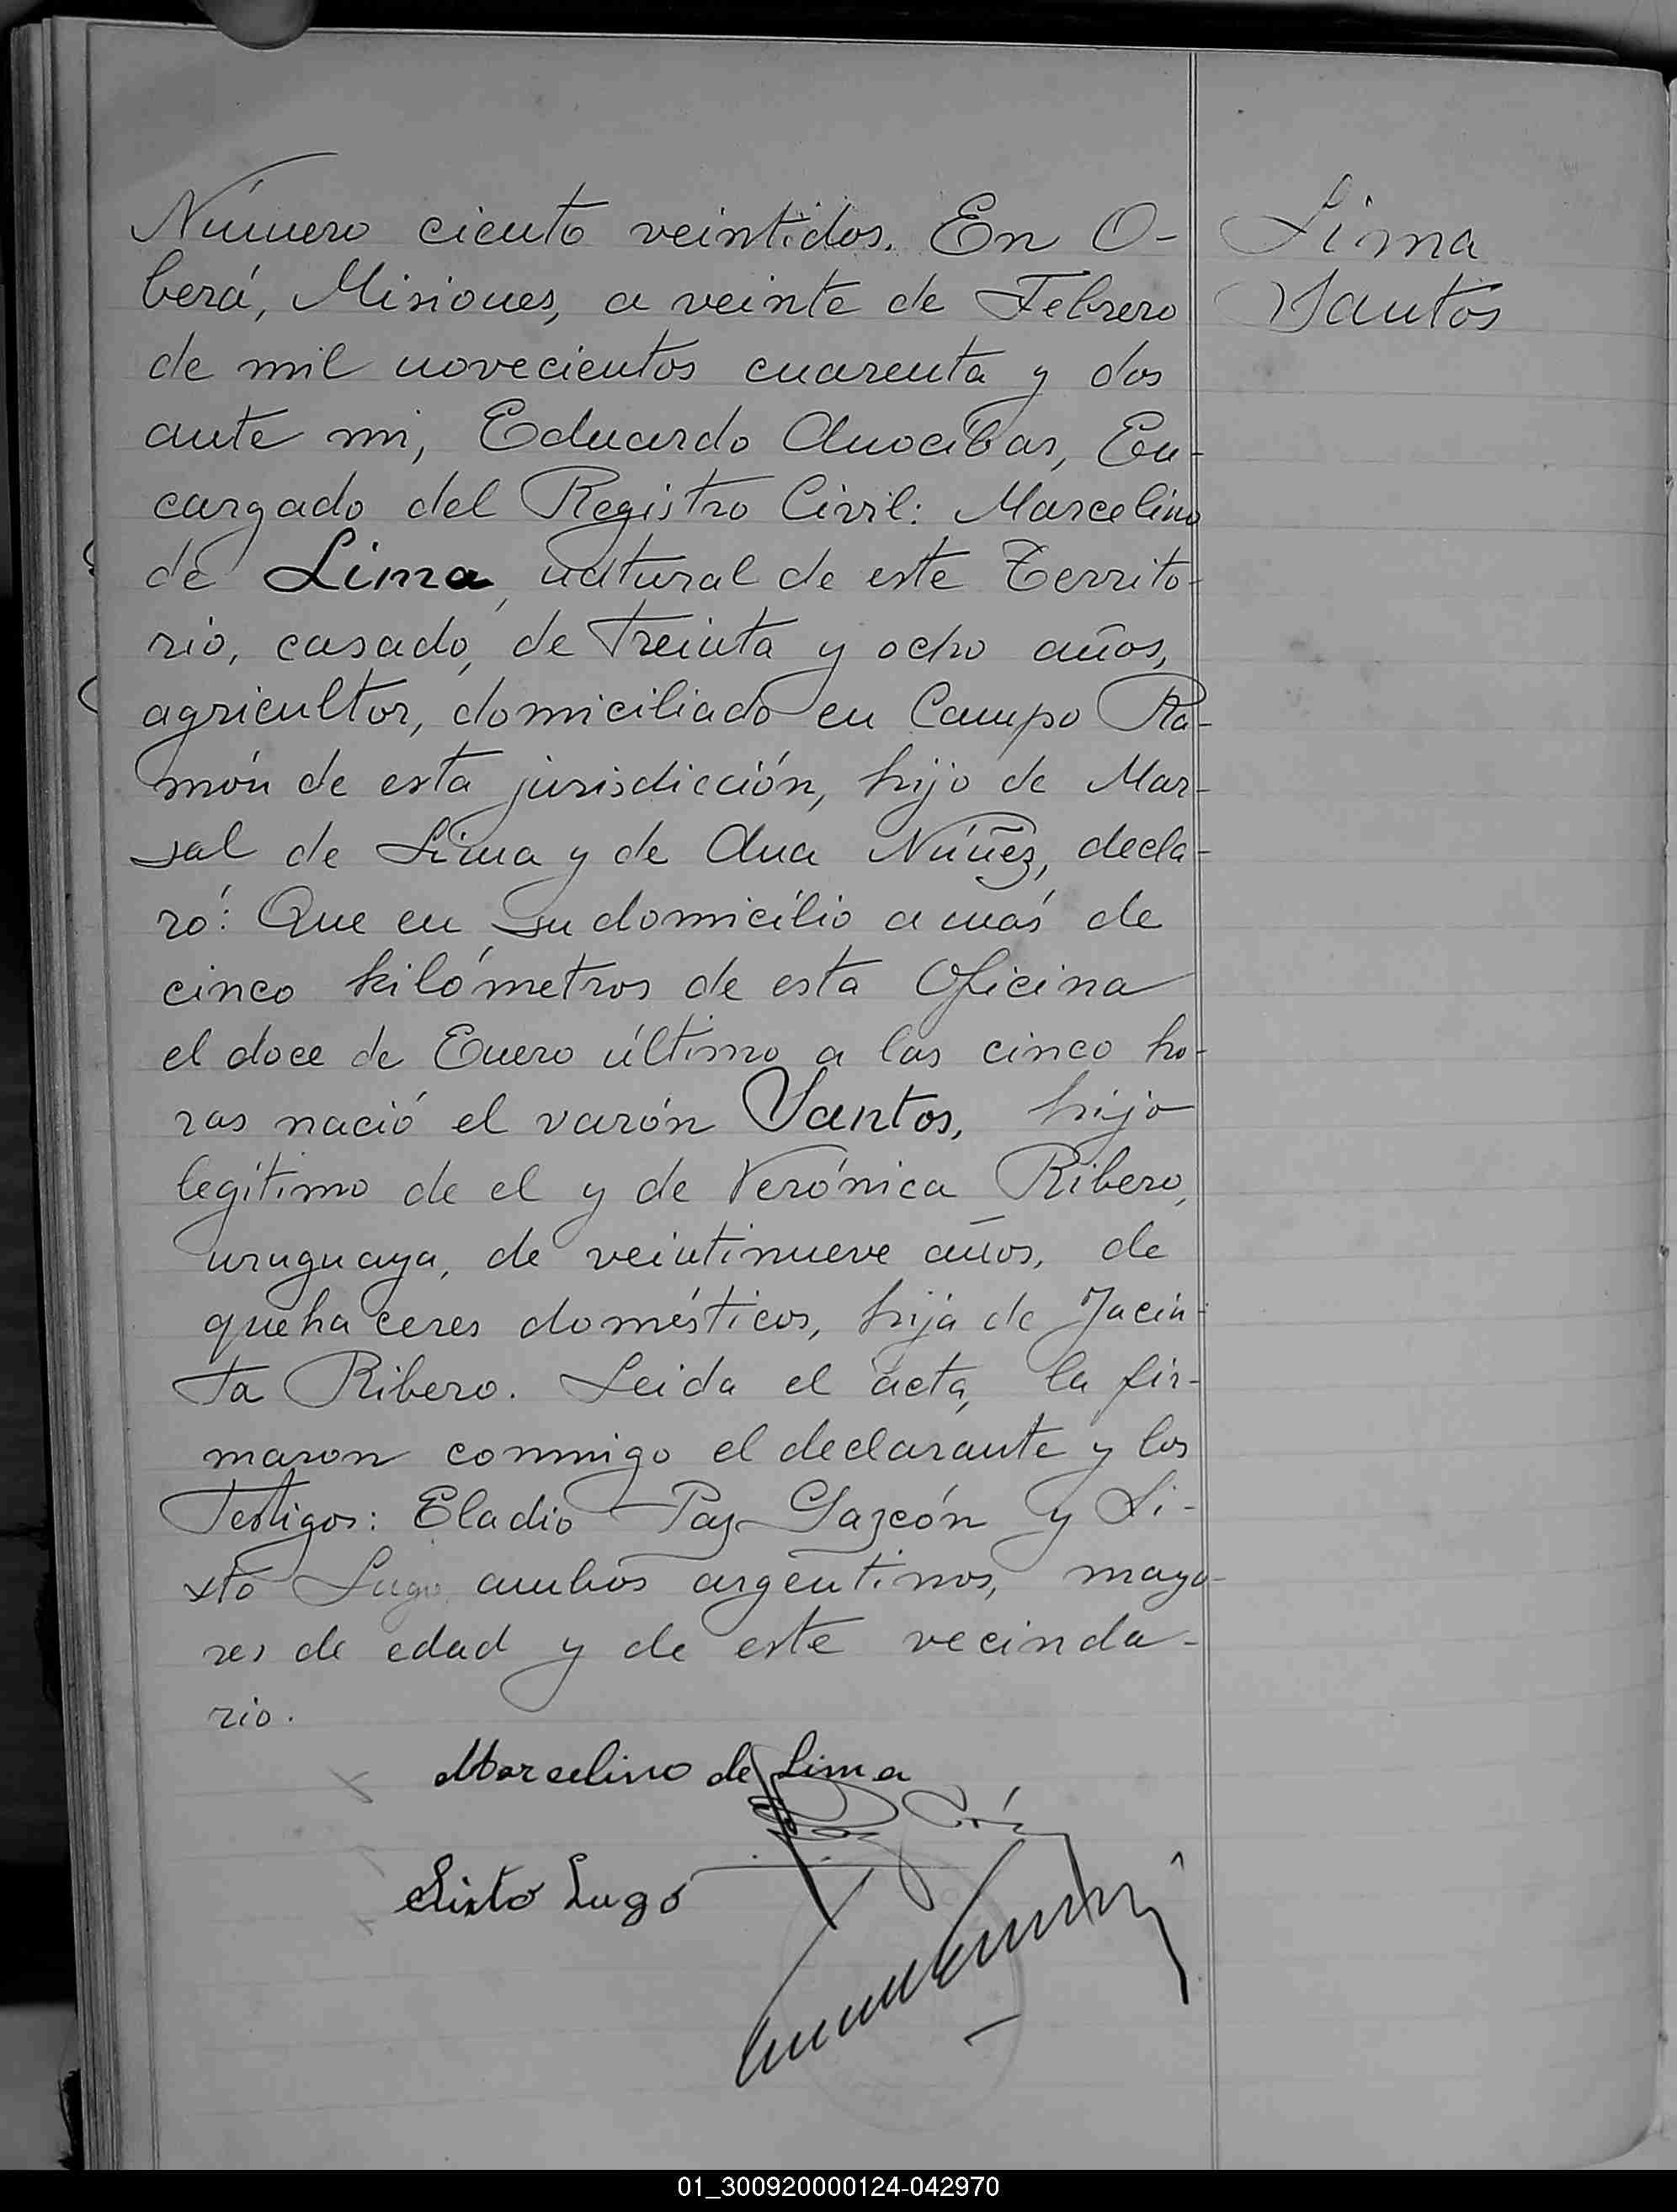 Número ciento veintidos. En O-
berá, Misiones, a veinte de Febrero
de mil novecientos cuarenta y dos
ante mi, Eduardo Anocíbar, En-
cargado del Registro Civil: Marcelino
de Lima, natural de este Territo-
rio, casado, de treinta y ocho años,
agricultor, domiciliado en Campo Ra-
món de esta jurisdicción, hijo de Mar-
sal de Lima y de Ana Núñez, decla-
ró: Que en su domicilio a más de
cinco kilómetros de esta Oficina
el doce de Enero último a las cinco ho-
ras nació el varón Santos, hijo
legítimo de el y de Verónica Ribero,
uruguaya, de veintinueve años, de
quehaceres domésticos, hija de Jacin-
ta Ribero. Leida el acta, la fir-
maron conmigo el declarante y los
Testigos: Eladio Paz Gazcón y Si-
xto Lugo ambos argentinos, mayo-
res de edad y de este vecinda-
rio.
Marcelino de Lima
Sixto Lugo
Lima
Santos
01_300920000124-042970